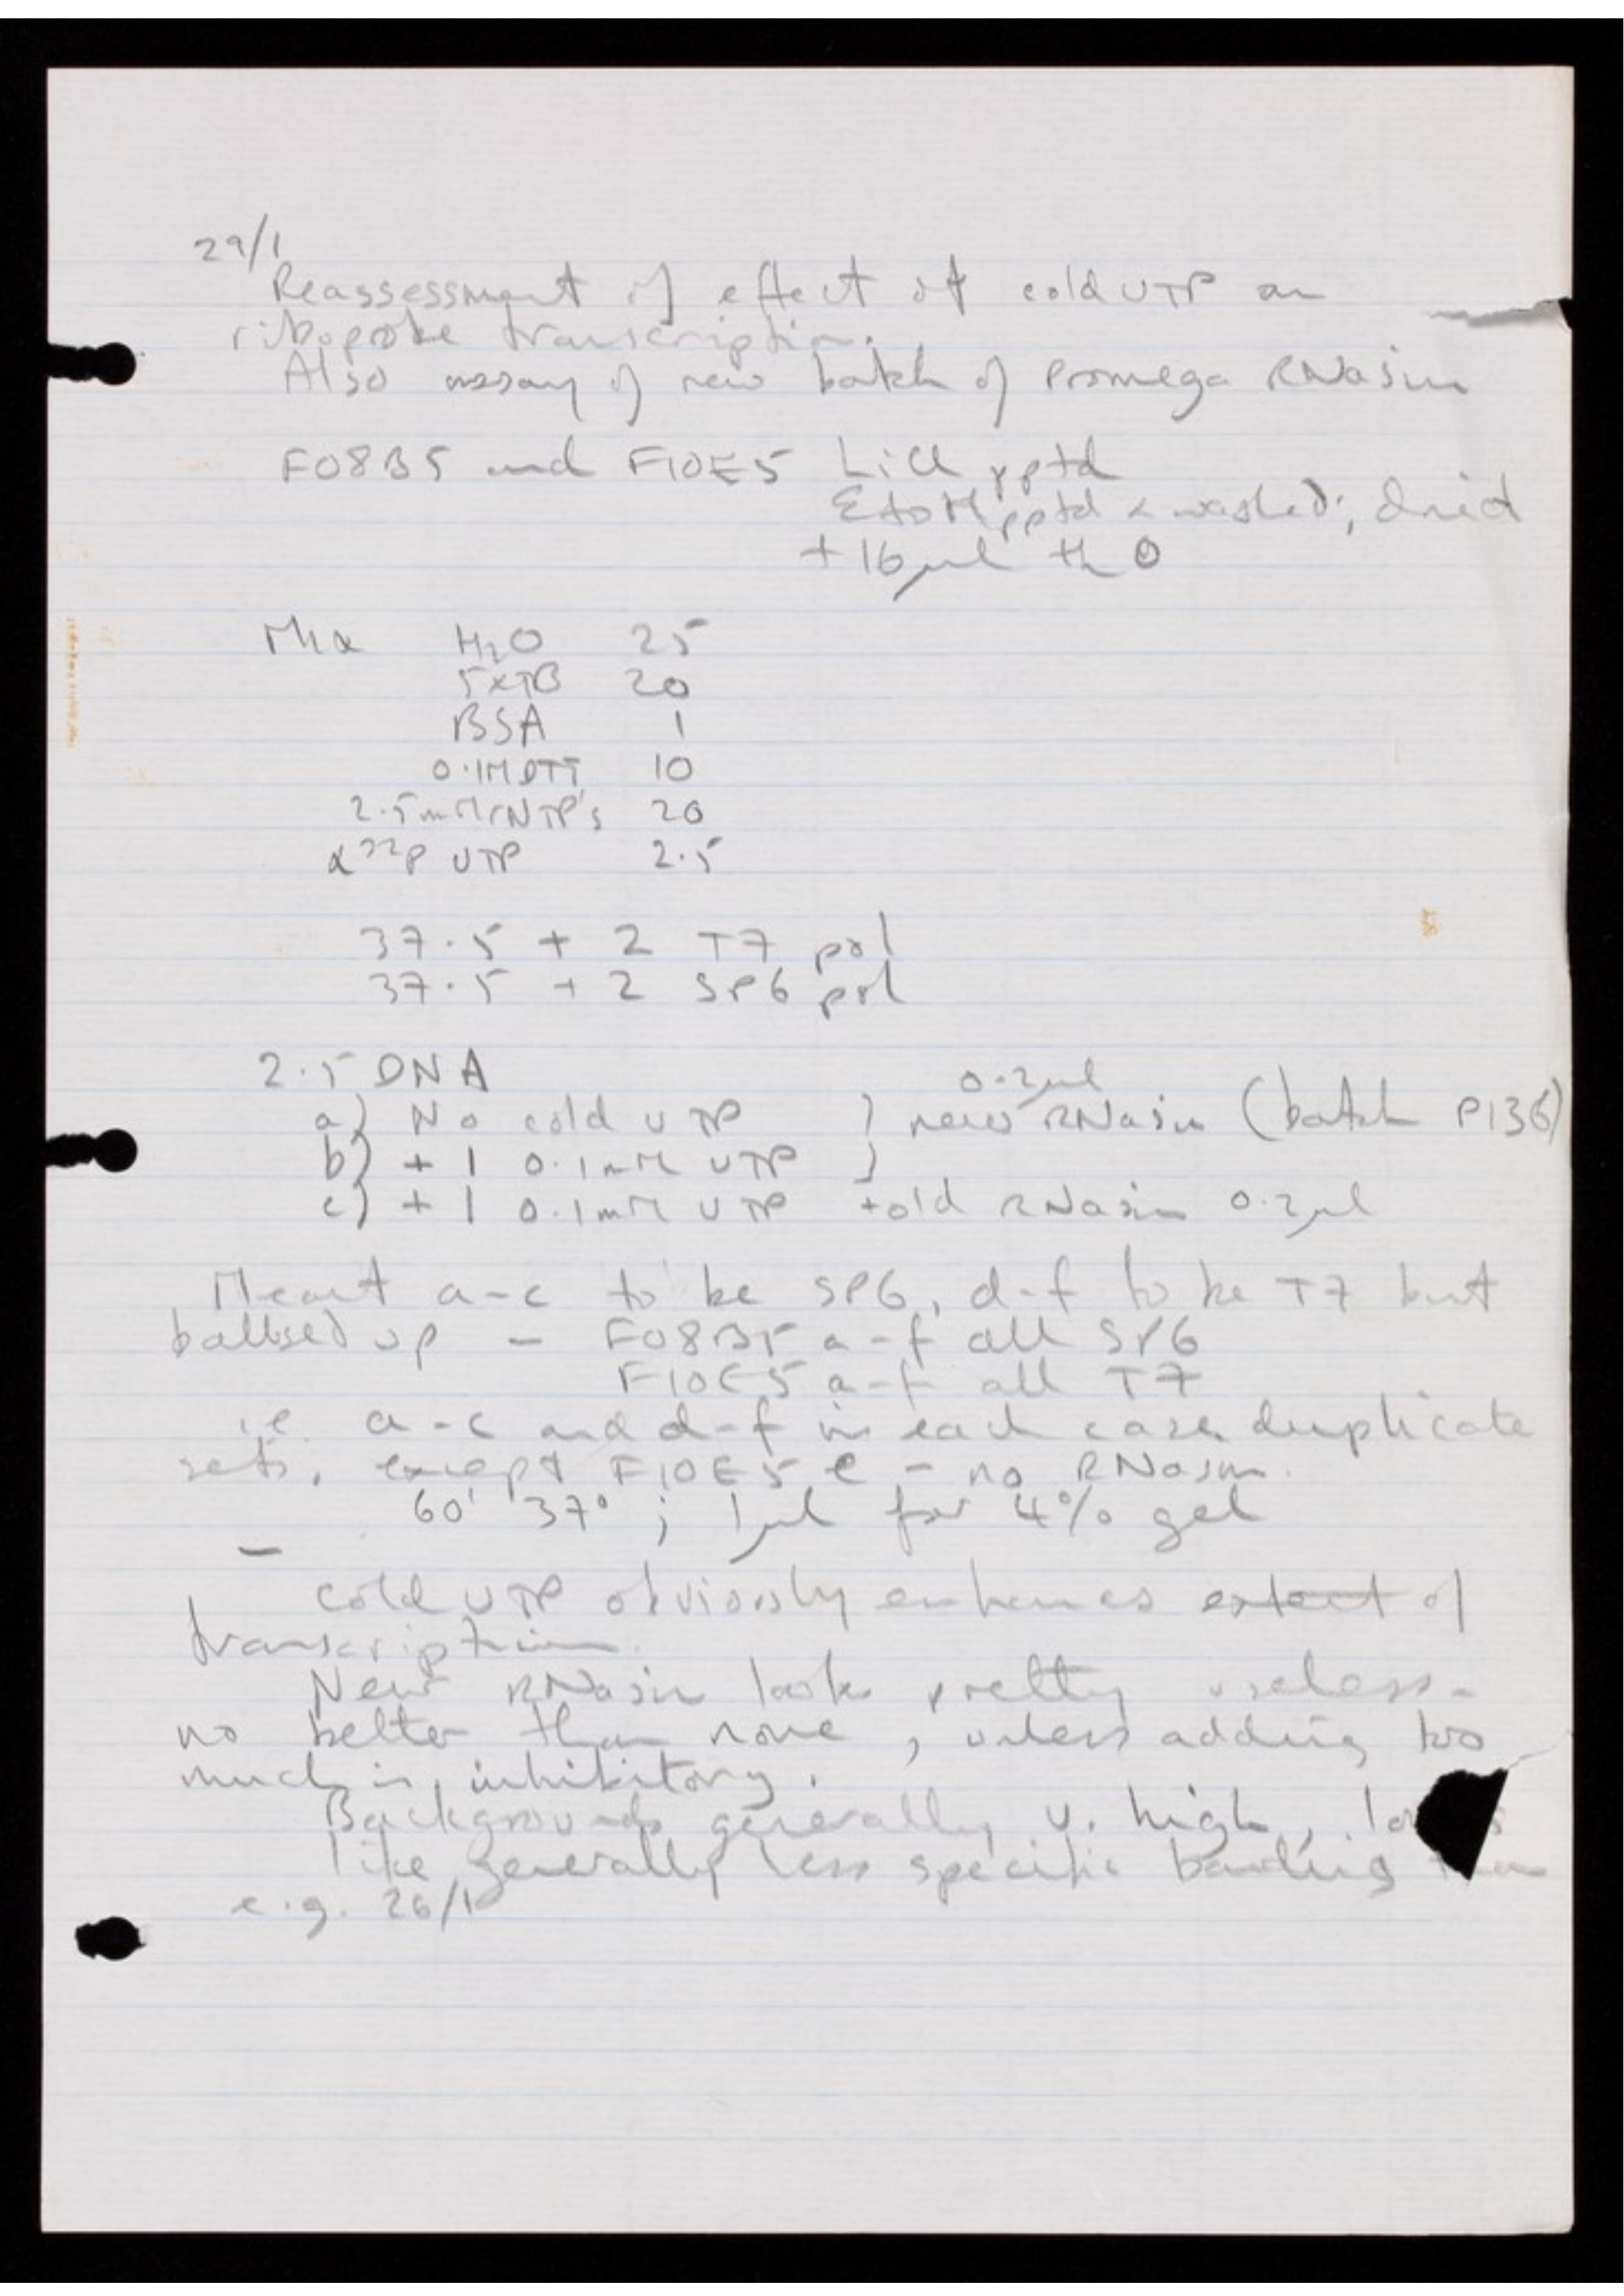 29/1
Reassessment of effect of cold UTP on
riboprobe transcription.
Also assay of new batch of Promega RNasin
F08B5 and F10E5 LiCl pptd
EtOH pptd & washed; dried
+ 16µl H2O
Mix H2O 25
5xTB 20
BSA 1
0.1M DTT 10
2.5mM rNTP's 20
α32P UTP 2.5
37.5 + 2 T7 pol
37.5 + 2 SP6 pol
2.5 DNA
0.2µl
a) No cold UTP } new RNasin (batch P136)
b) + 1 0.1mM UTP }
c) + 1 0.1mM UTP + old RNasin 0.2µl
Meant a-c to be SP6, d-f to be T7 but
ballsed up - F08B5 a-f all SP6
F10E5 a-f all T7
i.e. a-c and d-f in each case duplicate
sets, except F10E5 e - no RNasin.
60' 37°; 1µl for 4% gel
- cold UTP obviously enhances extent of
transcription.
New RNasin looks pretty useless -
no better than none, unless adding too
much is inhibitory.
Backgrounds generally v. high,
like generally less specific banding than
e.g. 26/1